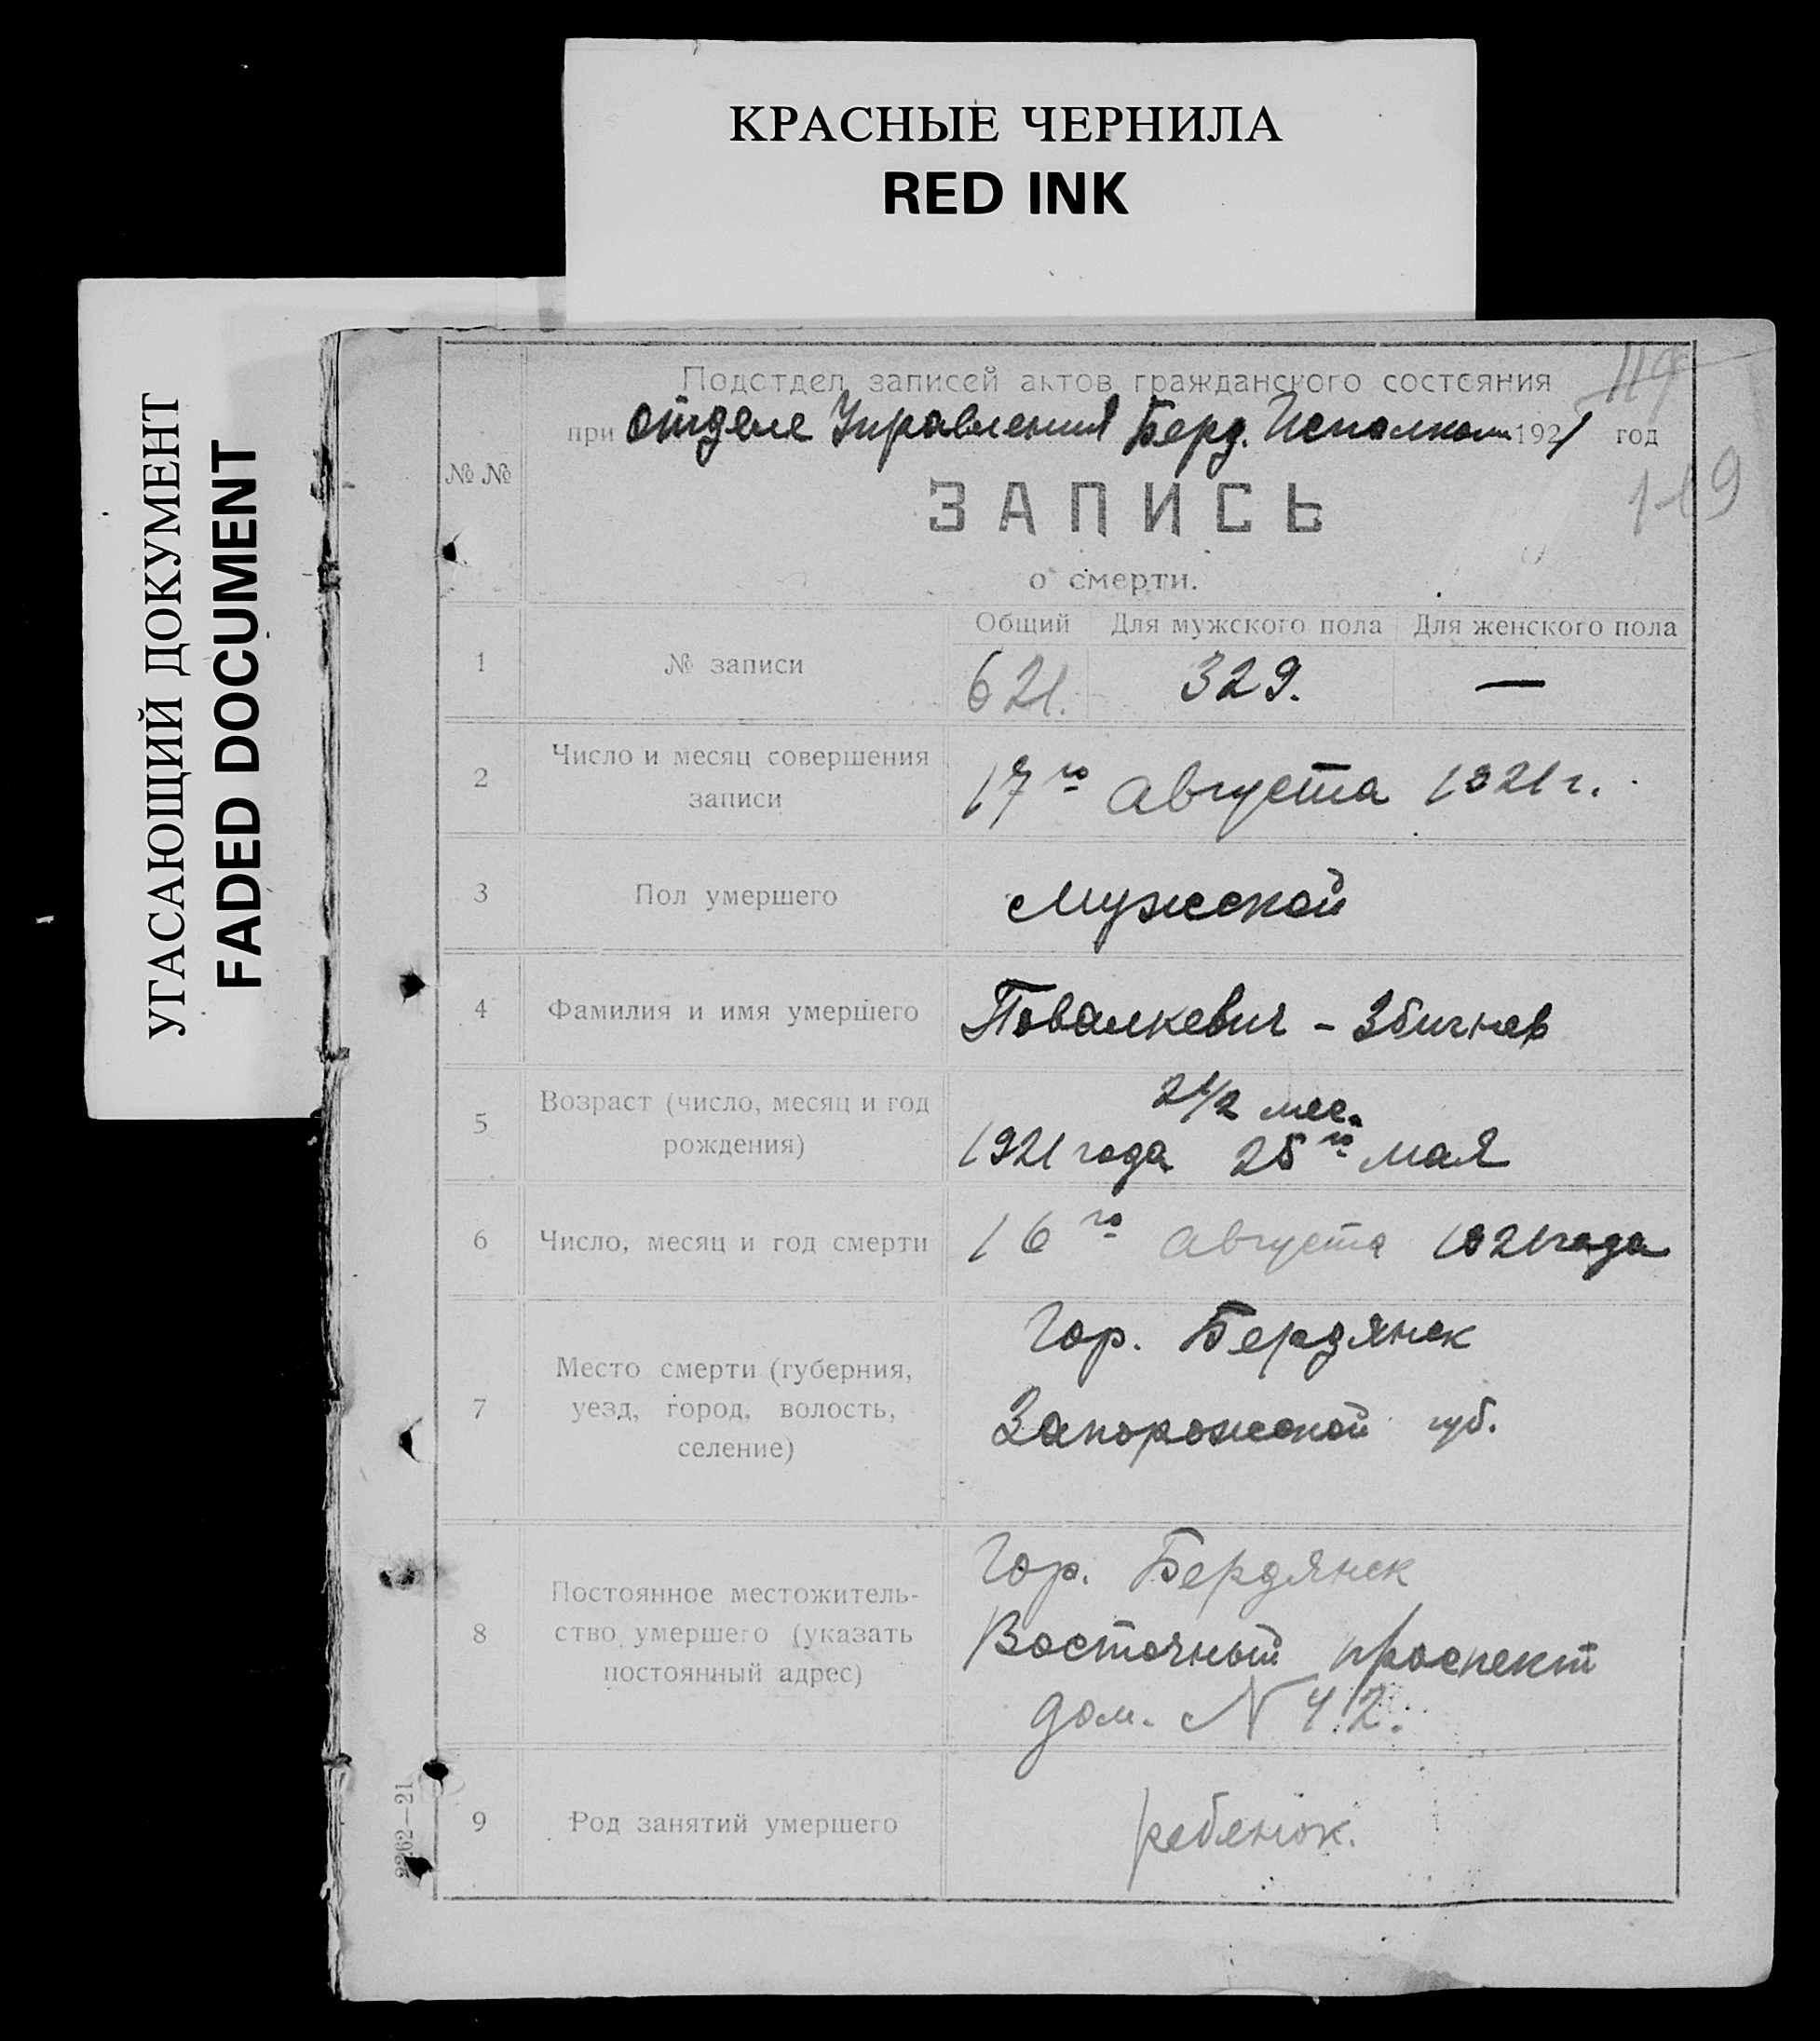 КРАСНЫЕ ЧЕРНИЛА
RED INK
УГАСАЮЩИЙ ДОКУМЕНТ
FADED DOCUMENT
Подотдел записей актов гражданского состояния
119
при отделе Управления Берд. Исполком 1921 год
119
№ №
ЗАПИСЬ
о смерти.
Общий Для мужского пола Для женского пола
1 № записи 621. 329. —
2 Число и месяц совершения
записи
17го Августа 1921 г.
3 Пол умершего Мужской
4 Фамилия и имя умершего Повалкевич - Збигнев
5 Возраст (число, месяц и год
рождения)
2 1/2 мес.
1921 года 25го мая
6 Число, месяц и год смерти 16го Августа 1921 года
7 Место смерти (губерния,
уезд, город, волость,
селение)
Гор. Бердянск
Запорожской губ.
8 Постоянное местожитель-
ство умершего (указать
постоянный адрес)
Гор. Бердянск
Восточный проспект
дом. N 42.
9 Род занятий умершего ребенок.
2262—21